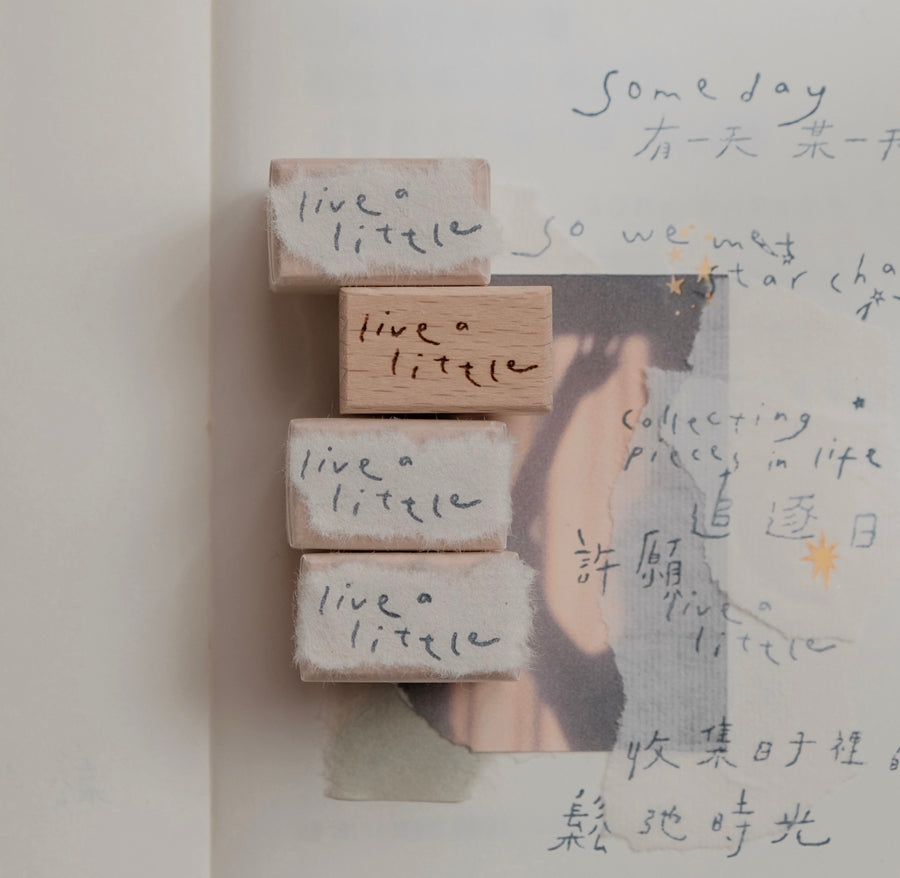 someday
有一天 某一天
live a
little
so we met
star cha
live a
little
collecting
pieces in life
live a
little
追逐日
許願
live a
little
live a
little
收集日子裡
鬆弛時光